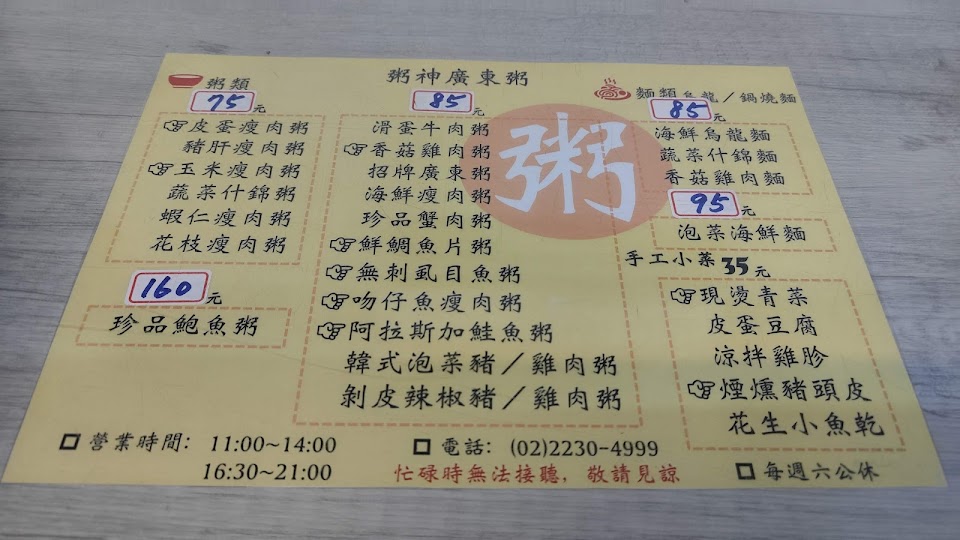 粥神廣東粥
粥類
75元
皮蛋瘦肉粥
豬肝瘦肉粥
玉米瘦肉粥
蔬菜什錦粥
蝦仁瘦肉粥
花枝瘦肉粥
160元
珍品鮑魚粥
85元
滑蛋牛肉粥
香菇雞肉粥
招牌廣東粥
海鮮瘦肉粥
珍品蟹肉粥
鮮鯛魚片粥
無刺虱目魚粥
吻仔魚瘦肉粥
阿拉斯加鮭魚粥
韓式泡菜豬／雞肉粥
剝皮辣椒豬／雞肉粥
粥
麵類烏龍／鍋燒麵
85元
海鮮烏龍麵
蔬菜什錦麵
香菇雞肉麵
95元
泡菜海鮮麵
手工小菜35元
現燙青菜
皮蛋豆腐
涼拌雞胗
煙燻豬頭皮
花生小魚乾
營業時間: 11:00~14:00
16:30~21:00
電話: (02)2230-4999
忙碌時無法接聽, 敬請見諒
每週六公休